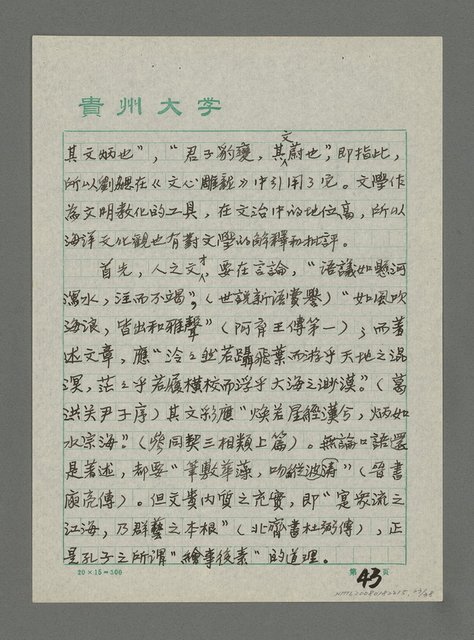 貴州大学
其文炳也”，“君子豹變，其文蔚也”，即指此，
所以劉勰在《文心雕龍》中引用了它。文學作
為文明教化的工具，在文治中的地位高，所以
海洋文化觀也有對文學的解釋和批評。
首先，人之文才，要在言論，“語議如懸河
瀉水，注而不竭”，（世說新語賞譽）“如風吹
海浪，皆出和雅聲”（阿育王傳第一）；而著
述文章，應“泠之然若躡飛葉而游乎天地之混
溟，茫之乎若履橫校而浮乎大海之渺漠。”（葛
洪关尹子序）其文彩應“煥若星經漢兮，炳如
水宗海。”（參同契三相類上篇）。無論口語還
是著述，都要“筆敷華藻，吻縱波濤”（晉書
庾亮傳）。但文貴內質之充實，即“寔眾流之
江海，乃群藝之本根”（北齊書杜弼傳），正
是孔子之所謂“繪事後素”的道理。
20×15=300
第43页